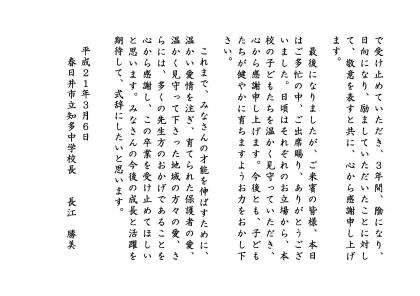 で受け止めていただき、３年間、陰になり、
日向になり、励ましていただいたことに対し
て、敬意を表すと共に、心から感謝申し上げ
ます。
最後になりましたが、ご来賓の皆様、本日
はご多忙の中、ご出席賜り、ありがとうござ
いました。日頃はそれぞれのお立場から、本
校の子どもたちを温かく見守っていただき、
心から感謝申し上げます。今後とも、子ども
たちが健やかに育ちますようお力をおかし下
さい。
これまで、みなさんの才能を伸ばすために、
温かい愛情を注ぎ、育てられた保護者の愛、
温かく見守って下さった地域の方々の愛、さ
らには、多くの先生方のおかげであることを
心から感謝し、この卒業を受け止めてほしい
と思います。みなさんの今後の成長と活躍を
期待して、式辞にしたいと思います。
平成２１年３月６日
春日井市立知多中学校長　長江　勝美